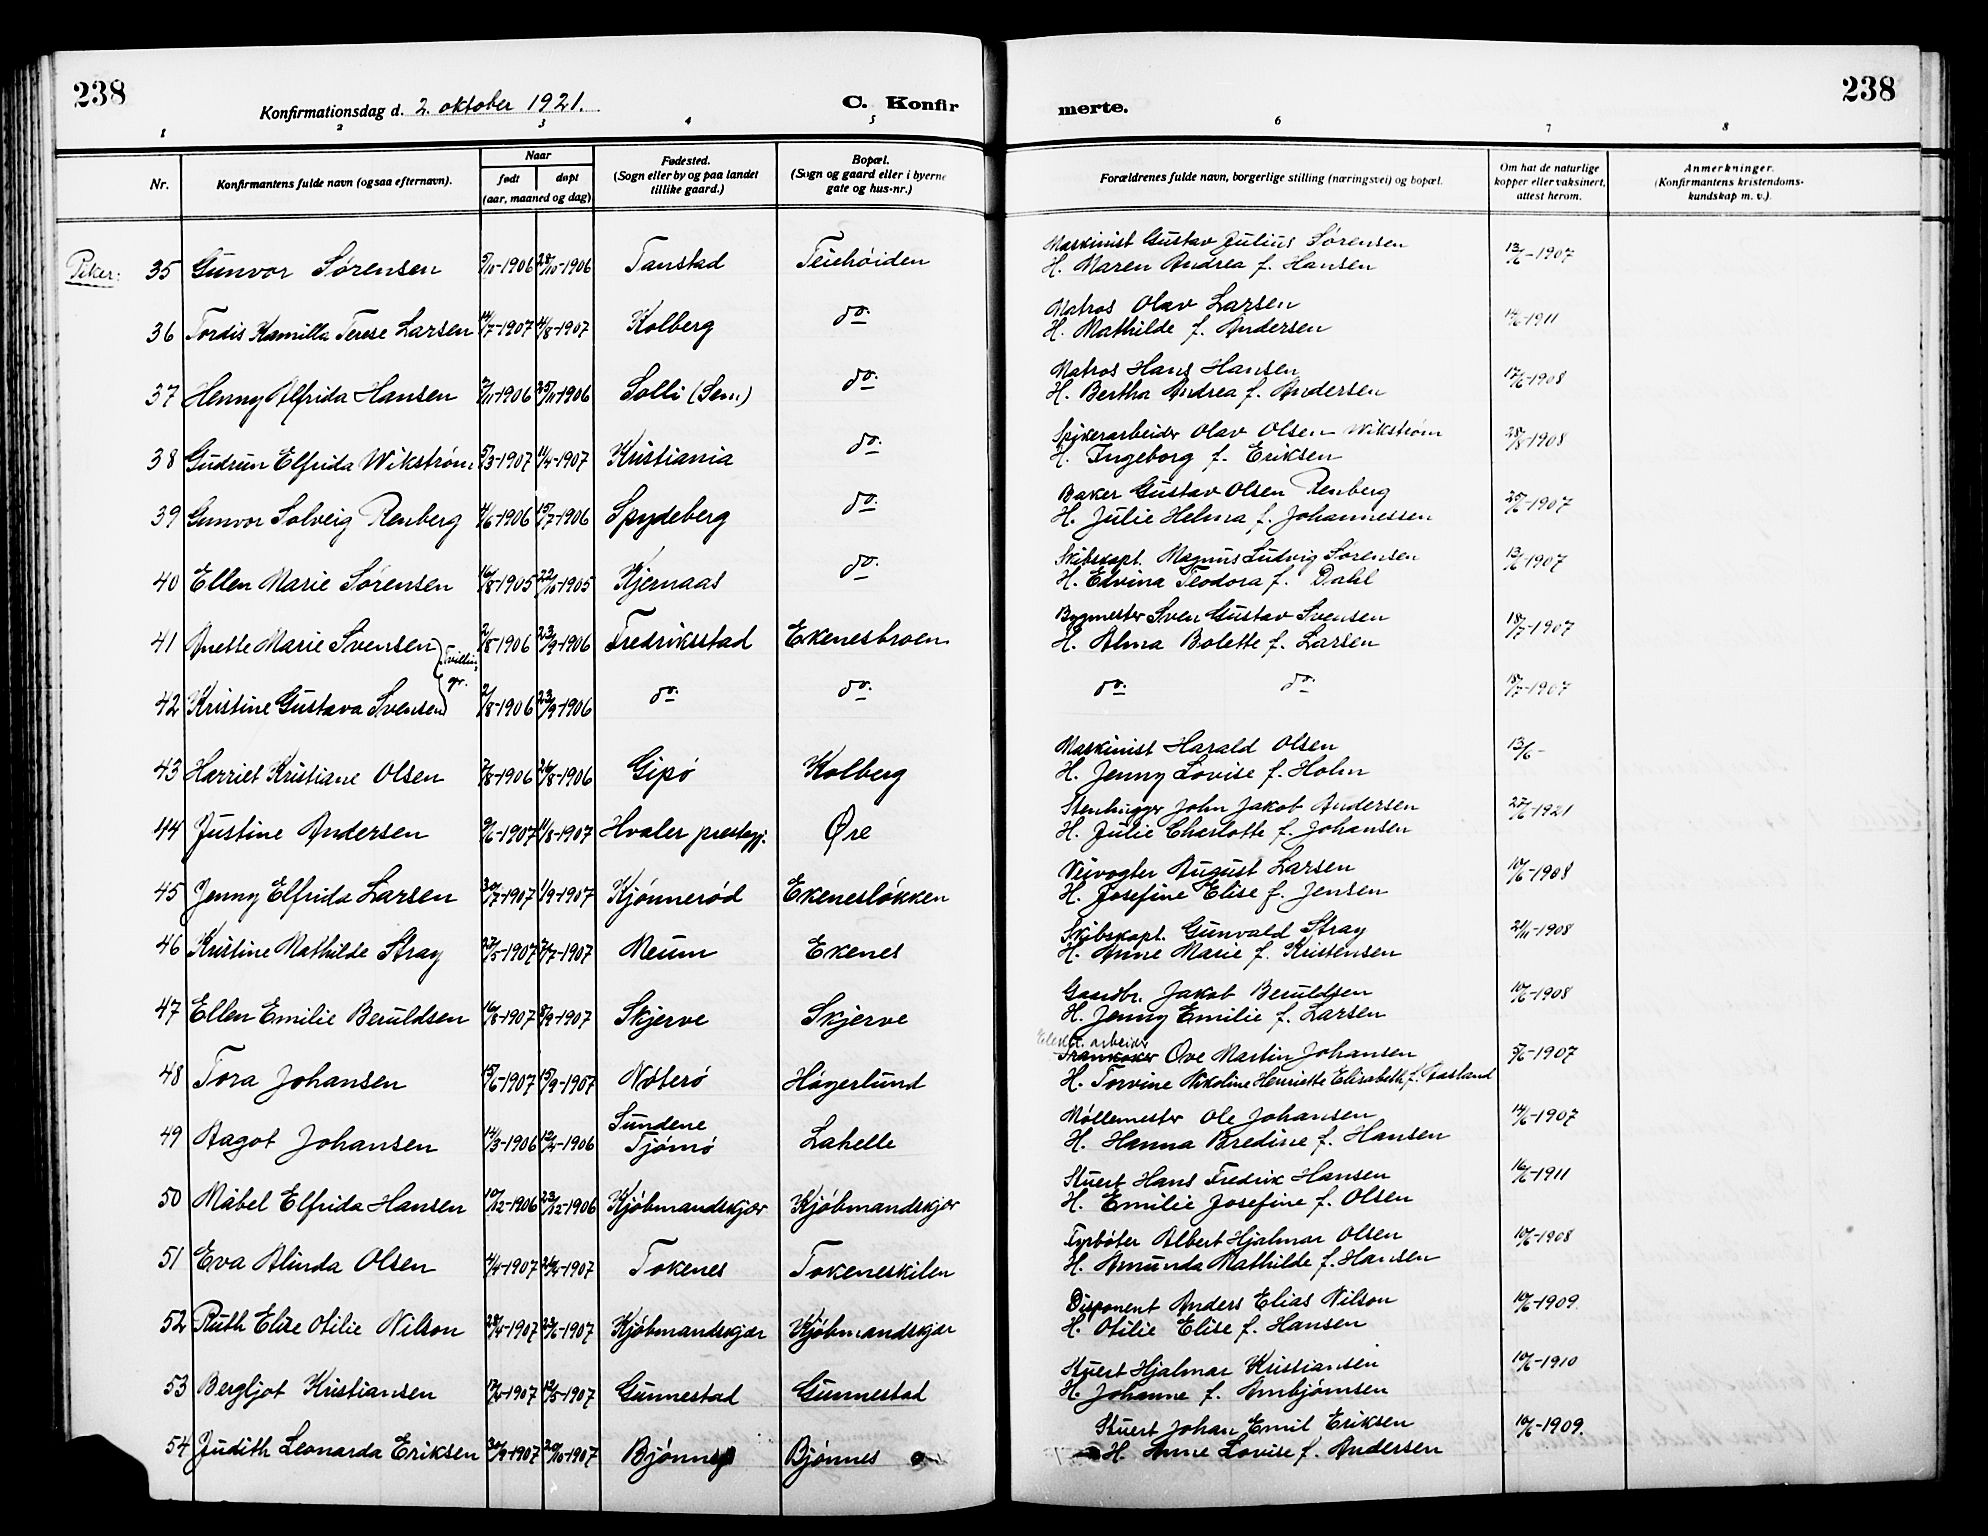 238
Konfirmationsdag d. 2. oktober 1921.
C. Konfir
merte.
238
1 2 3 4 5 6 7 8
Nr.
Konfirmantens fulde navn (ogsaa efternavn).
Naar
født døpt
(aar, maaned og dag)
Fødested.
(Sogn eller by og paa landet
tillike gaard.)
Bopæl.
(Sogn og gaard eller i byerne
gate og hus-nr.)
Forældrenes fulde navn, borgerlige stilling (næringsvei) og bopæl.
Om hat de naturlige
kopper eller vaksinert,
attest herom.
Anmerkninger.
(Konfirmantens kristendoms-
kundskap m. v.).
Piker:
35 Gunvor Sørensen 5/10-1906 28/10-1906 Tanstad Teiehøiden
Maskinist Gustav Julius Sørensen
H. Maren Andrea f. Hansen 13/6-1907
36 Tordis Kamilla Terese Larsen 14/7-1907 4/8-1907 Kolberg do.
Matros Olav Larsen
H. Mathilde f. Andersen 14/6-1911
37 Henny Alfrida Hansen 2/11-1906 25/11-1906 Solli (Sem) do.
Matros Hans Hansen
H. Bertha Andrea f. Andersen 17/6-1908
38 Gudrun Elfrida Wikstrøm 5/3-1907 11/4-1907 Kristiania do.
Spikerarbeider Olav Olsen Wikstrøm
H. Ingeborg f. Eriksen 28/8-1908
39 Gunvor Solveig Renberg 4/6-1906 15/7-1906 Spydeberg do.
Baker Gustav Olsen Renberg
H. Julie Helma f. Johannessen 25/6-1907
40 Ellen Marie Sørensen 16/8-1905 22/10-1905 Kjernaas do.
Skibskapt. Magnus Ludvig Sørensen
H. Edvina Teodora f. Dahl 13/6-1907
41 Anette Marie Svensen 2/8-1906 23/9-1906 Fredriksstad Ekenesbroen
Tvillin-
ger.
Bygmester Sven Gustav Svensen
H. Alma Bolette f. Larsen 18/7-1907
42 Kristine Gustava Svensen 2/8-1906 23/9-1906 do. do.
do. do. 18/7-1907
43 Harriet Kristiane Olsen 7/8-1906 26/8-1906 Gipø Kolberg
Maskinist Harald Olsen
H. Jenny Lovise f. Holm 13/6-
44 Justine Andersen 9/6-1907 11/8-1907 Hvaler prestegj. Øre
Stenhugger John Jakob Andersen
H. Julie Charlotte f. Johansen 27/6-1921
45 Jenny Elfrida Larsen 30/7-1907 1/9-1907 Kjønnerød Ekenesløkken
Veivogter August Larsen
H. Josefine Elise f. Jensen 10/6-1908
46 Kristine Mathilde Stray 27/5-1907 7/7-1907 Meum Ekenes
Skibskapt. Gunvald Stray
H. Anne Marie f. Kristensen 21/11-1908
47 Ellen Emilie Beruldsen 16/8-1907 8/9-1907 Skjerve Skjerve
Gaardbr. Jakob Beruldsen
H. Jenny Emilie f. Larsen 10/6-1908
48 Tora Johansen 15/6-1907 15/9-1907 Nøterø Høgerlund
Elektr. arbeider
Trankoker Ove Martin Johansen
H. Torvine Nikoline Henriette Elisabeth f. Aasland 5/6-1907
49 Aagot Johansen 14/3-1906 Sundene
Tjømø Lahelle
Møllemester Ole Johansen
H. Hanna Bredine f. Hansen 14/6-1907
50 Mabel Elfrida Hansen 10/12-1906 23/12-1906 Kjøbmandskjær Kjøbmandskjær
Stuert Hans Fredrik Hansen
H. Emilie Josefine f. Olsen 16/6-1911
51 Eva Alinda Olsen 4/4-1907 Tokenes Tokeneskilen
Fyrbøter Albert Hjalmar Olsen
H. Amunda Mathilde f. Hansen 10/6-1908
52 Ruth Elise Otilie Nilson 28/4-1907 23/6-1907 Kjøbmandskjær Kjøbmandskjær
Disponent Anders Elias Nilson
H. Otilie Elise f. Hansen 10/6-1909.
53 Bergljot Kristiansen 12/5-1907 Gunnestad Gunnestad
Stuert Hjalmar Kristiansen
H. Johanne f. Arnbjørnsen 10/6-1910
54 Judith Leonarda Eriksen 30/9-1907 20/10-1907 Bjønnes Bjønnes
Stuert Johan Emil Eriksen
H. Anne Lovise f. Andersen 10/6-1909.